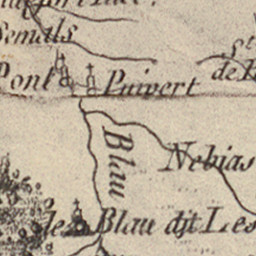 Semals
Pont Puivert
St
de
Blau
Nebias
le Blau dit Les